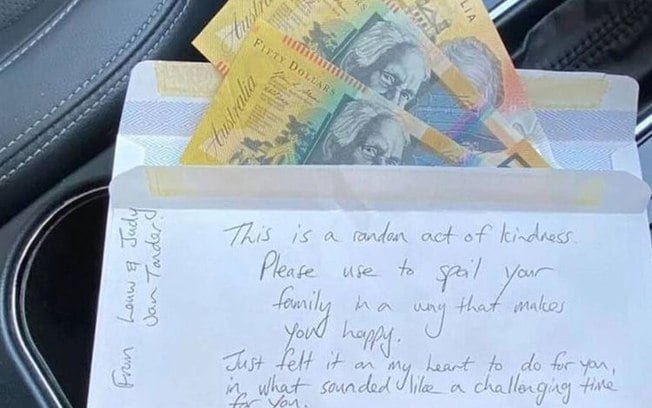 Australia
Australia
FIFTY DOLLARS
This is a random act of kindness.
Please use to spoil your
family in a way that makes
you happy.
Just felt it on my heart to do for you,
in what sounded like a challenging time
for you.
From Louw & Judy